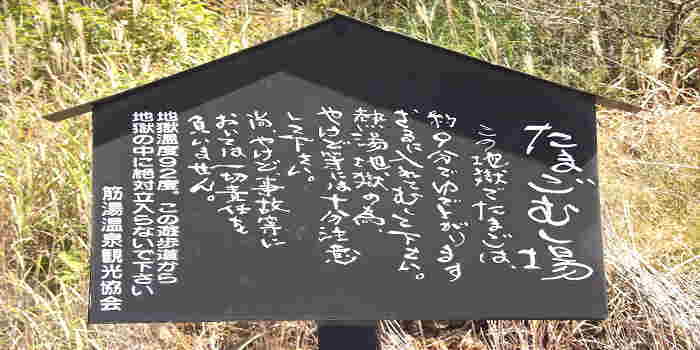 たまごむし場
この地獄でたまごは、
約9分でゆでよがります
ざるに入れてむして下さい。
熱湯地獄の為、
やけど等には十分注意
して下さい。
尚、やけど事故等に
おいては一切責任を
負いません。
地獄温度92度。この遊歩道から
地獄の中に絶対立入らないで下さい
筋湯温泉観光協会